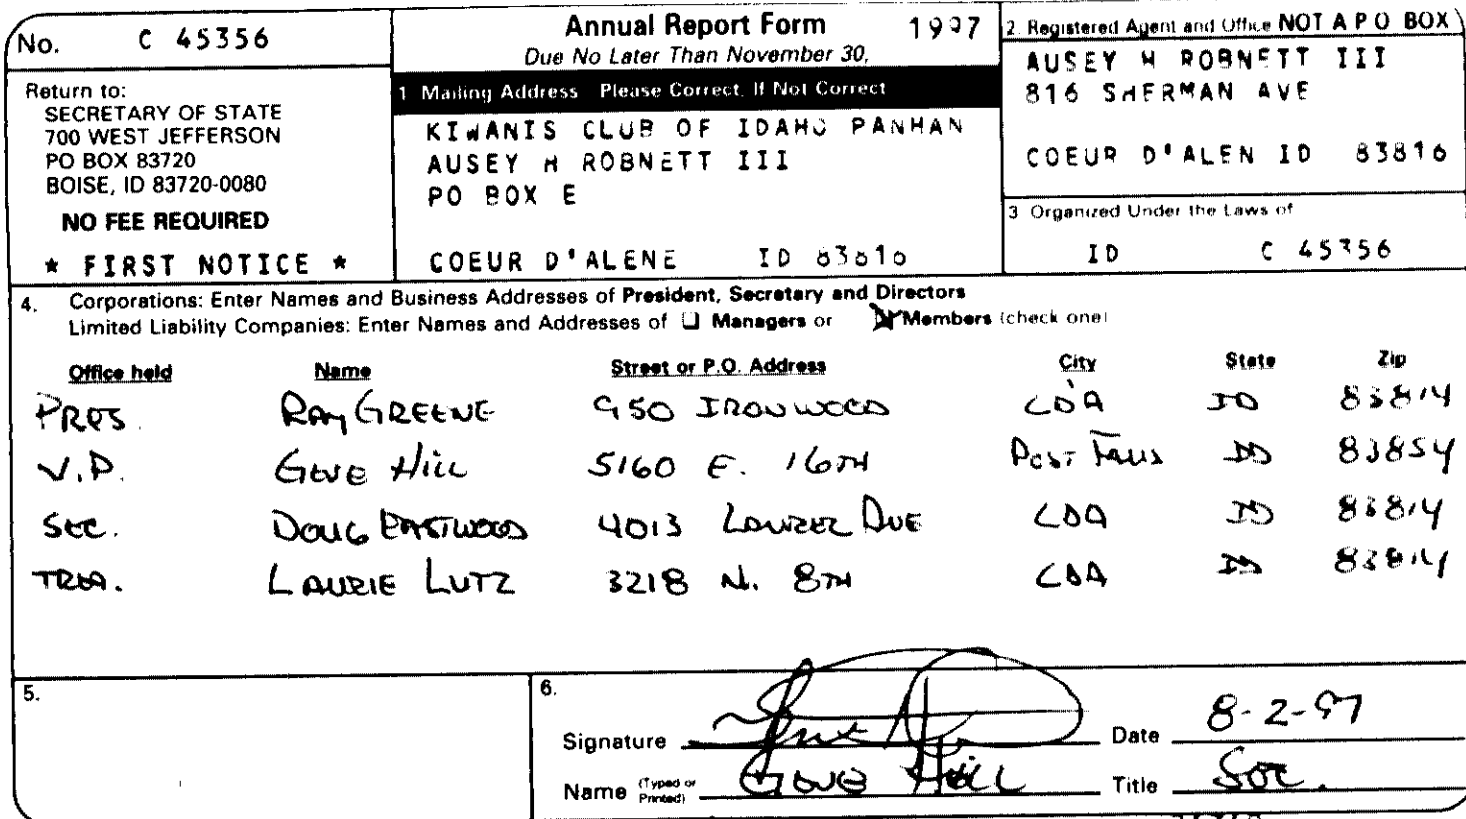 No. C 45356
Return to:
SECRETARY OF STATE
700 WEST JEFFERSON
PO BOX 83720
BOISE, ID 83720-0080
NO FEE REQUIRED
* FIRST NOTICE *
Annual Report Form 1997
Due No Later Than November 30,
1 Mailing Address Please Correct, If Not Correct
KIWANIS CLUB OF IDAHO PANHAN
AUSEY H ROBNETT III
PO BOX E
COEUR D'ALENE ID 83816
2. Registered Agent and Office NOT A P O BOX
AUSEY H ROBNETT III
816 SHERMAN AVE
COEUR D'ALEN ID 83816
3 Organized Under the Laws of
ID C 45356
4. Corporations: Enter Names and Business Addresses of President, Secretary and Directors
Limited Liability Companies: Enter Names and Addresses of Managers or Members (check one)
Office held Name Street or P.O. Address City State Zip
PRES. RAY GREENE 950 IRONWOOD CD'A ID 83814
V.P. GENE HILL 5160 E. 16TH POST FALLS ID 83854
SEC. DOUG EASTWOOD 4013 CDA ID 83814
TREA. LAURIE LUTZ 3218 N. 8TH CDA ID 83814
5.
6.
Signature Date 8-2-97
Name (Typed or Printed) GENE HILL Title SEC.